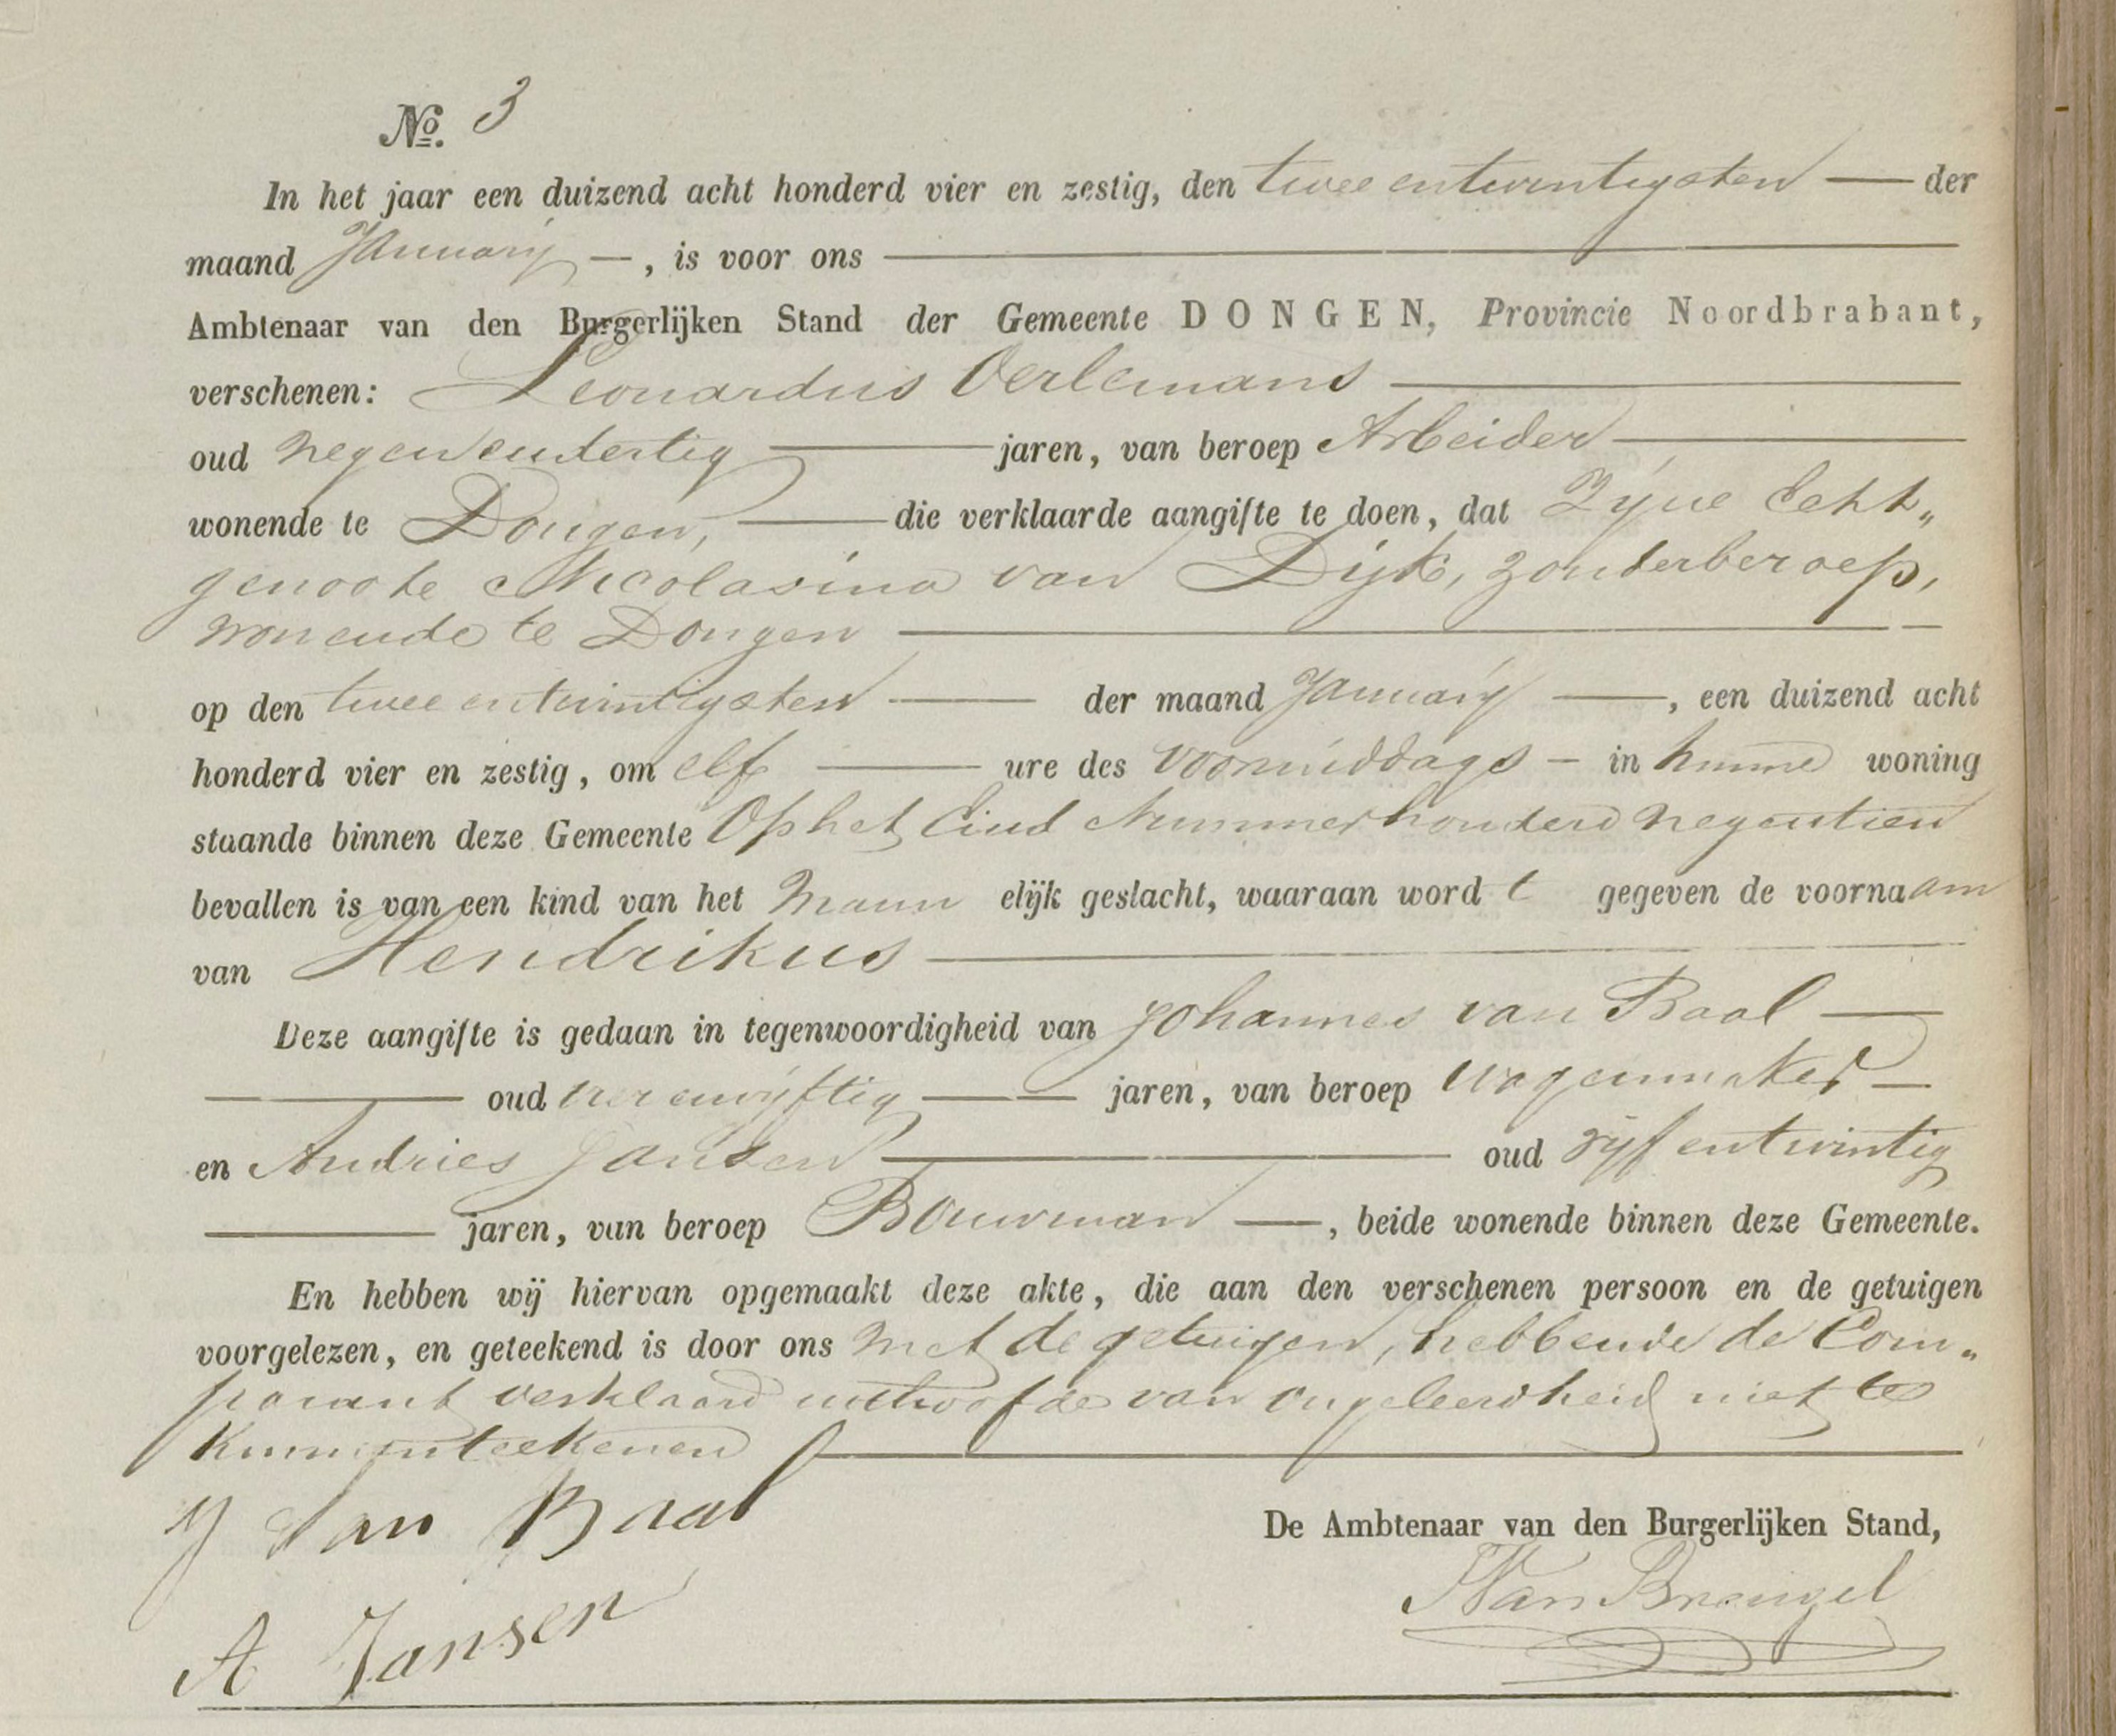 No. 3
In het jaar een duizend acht honderd vier en zestig, den twee entwintigsten — der
maand January —, is voor ons —
Ambtenaar van den Burgerlijken Stand der Gemeente DONGEN, Provincie Noordbrabant,
verschenen: Leonardus Oerlemans —
oud negen endertig — jaren, van beroep Arbeider —
wonende te Dongen, — die verklaarde aangifte te doen, dat Zyne Echt„
genoote Nicolasina van Dijk, zonder beroep,
wonende te Dongen —
op den twee entwintigsten — der maand January —, een duizend acht
honderd vier en zestig, om elf — ure des voormiddags — in hunne woning
staande binnen deze Gemeente Op het Eind Nummer honderd negentien
bevallen is van een kind van het Mann elijk geslacht, waaraan word t gegeven de voornaam
van Hendrikus —
Deze aangifte is gedaan in tegenwoordigheid van Johannes van Baal —
— oud vier envyftig — jaren, van beroep Wagenmaker —
en Andries Jansen — oud vyf entwintig
— jaren, van beroep Bouwman —, beide wonende binnen deze Gemeente.
En hebben wij hiervan opgemaakt deze akte, die aan den verschenen persoon en de getuigen
voorgelezen, en geteekend is door ons met de getuigen, hebbende de Com„
parant verklaard uithoofde van ongeleerdheid niet te
kunnen teekenen —
J Van Baal
De Ambtenaar van den Burgerlijken Stand,
A Jansen